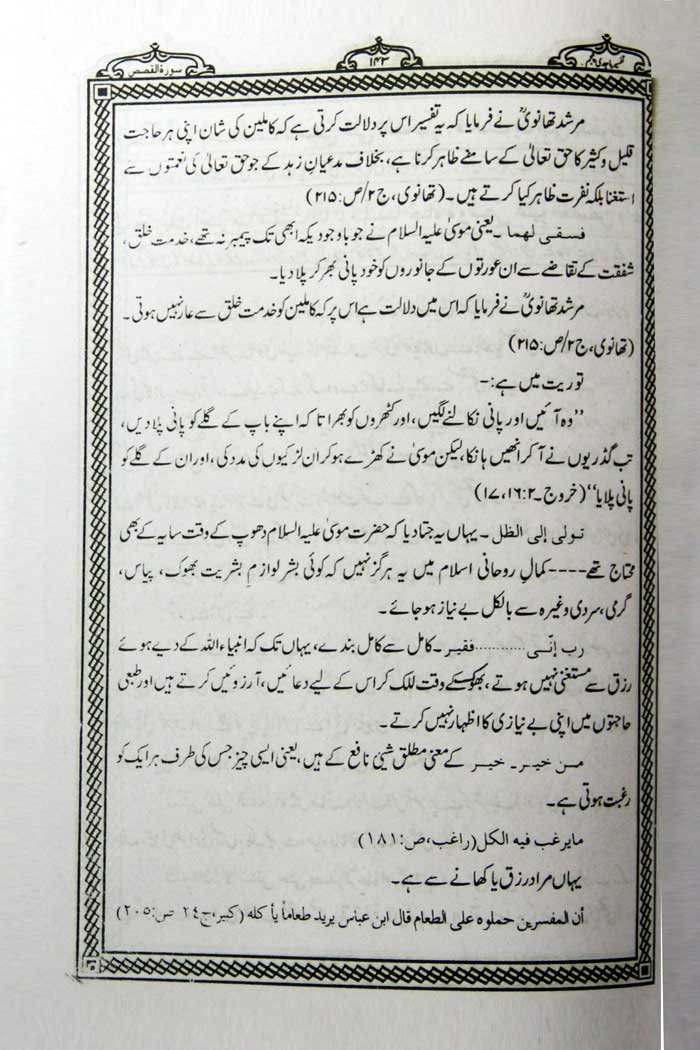 تفسیر ماجدی پنجم
۱۴۳
سورۃ القصص
مرشد تھانویؒ نے فرمایا کہ یہ تفسیر اس پر دلالت کرتی ہے کہ کاملین کی شان اپنی ہر حاجت
قلیل و کثیر کا حق تعالیٰ کے سامنے ظاہر کرنا ہے، بخلاف مدعیانِ زہد کے جو حق تعالیٰ کی نعمتوں سے
استغنا بلکہ نفرت ظاہر کیا کرتے ہیں۔ (تھانوی، ج۲/ص:۲۱۵)
فسقی لھما۔ یعنی موسیٰ علیہ السلام نے جو باوجودیکہ ابھی تک پیمبر نہ تھے، خدمت خلق،
شفقت کے تقاضے سے ان عورتوں کے جانوروں کو خود پانی بھر کر پلا دیا۔
مرشد تھانویؒ نے فرمایا کہ اس میں دلالت ہے اس پر کہ کاملین کو خدمت خلق سے عار نہیں ہوتی۔
(تھانوی، ج۲/ص:۲۱۵)
توریت میں ہے:-
’’وہ آئیں اور پانی نکالنے لگیں، اور کٹھروں کو بھرا تا کہ اپنے باپ کے گلے کو پانی پلا دیں،
تب گڈریوں نے آ کر انھیں ہانکا، لیکن موسیٰ نے کھڑے ہو کر ان لڑکیوں کی مدد کی، اور ان کے گلے کو
پانی پلایا‘‘ (خروج۔۲:۱۶، ۱۷)
تولی إلی الظل۔ یہاں یہ جتا دیا کہ حضرت موسیٰ علیہ السلام دھوپ کے وقت سایہ کے بھی
محتاج تھے----کمالِ روحانی اسلام میں یہ ہرگز نہیں کہ کوئی بشر لوازمِ بشریت بھوک، پیاس،
گرمی، سردی وغیرہ سے بالکل بے نیاز ہو جائے۔
رب إنّی...........فقیر۔ کامل سے کامل بندے، یہاں تک کہ انبیاء اللہ کے دیے ہوئے
رزق سے مستغنی نہیں ہوتے، بھوک کے وقت للک کر اس کے لیے دعائیں، آرزوئیں کرتے ہیں اور طبعی
حاجتوں میں اپنی بے نیازی کا اظہار نہیں کرتے۔
من خیر۔ خیر کے معنی مطلق شیئی نافع کے ہیں، یعنی ایسی چیز جس کی طرف ہر ایک کو
رغبت ہوتی ہے۔
مایرغب فیه الکل (راغب، ص:۱۸۱)
یہاں مراد رزق یا کھانے سے ہے۔
أن المفسرین حملوه علی الطعام قال ابن عباس یرید طعاماً یأکله (کبیر، ج۲۴ ص:۲۰۵)